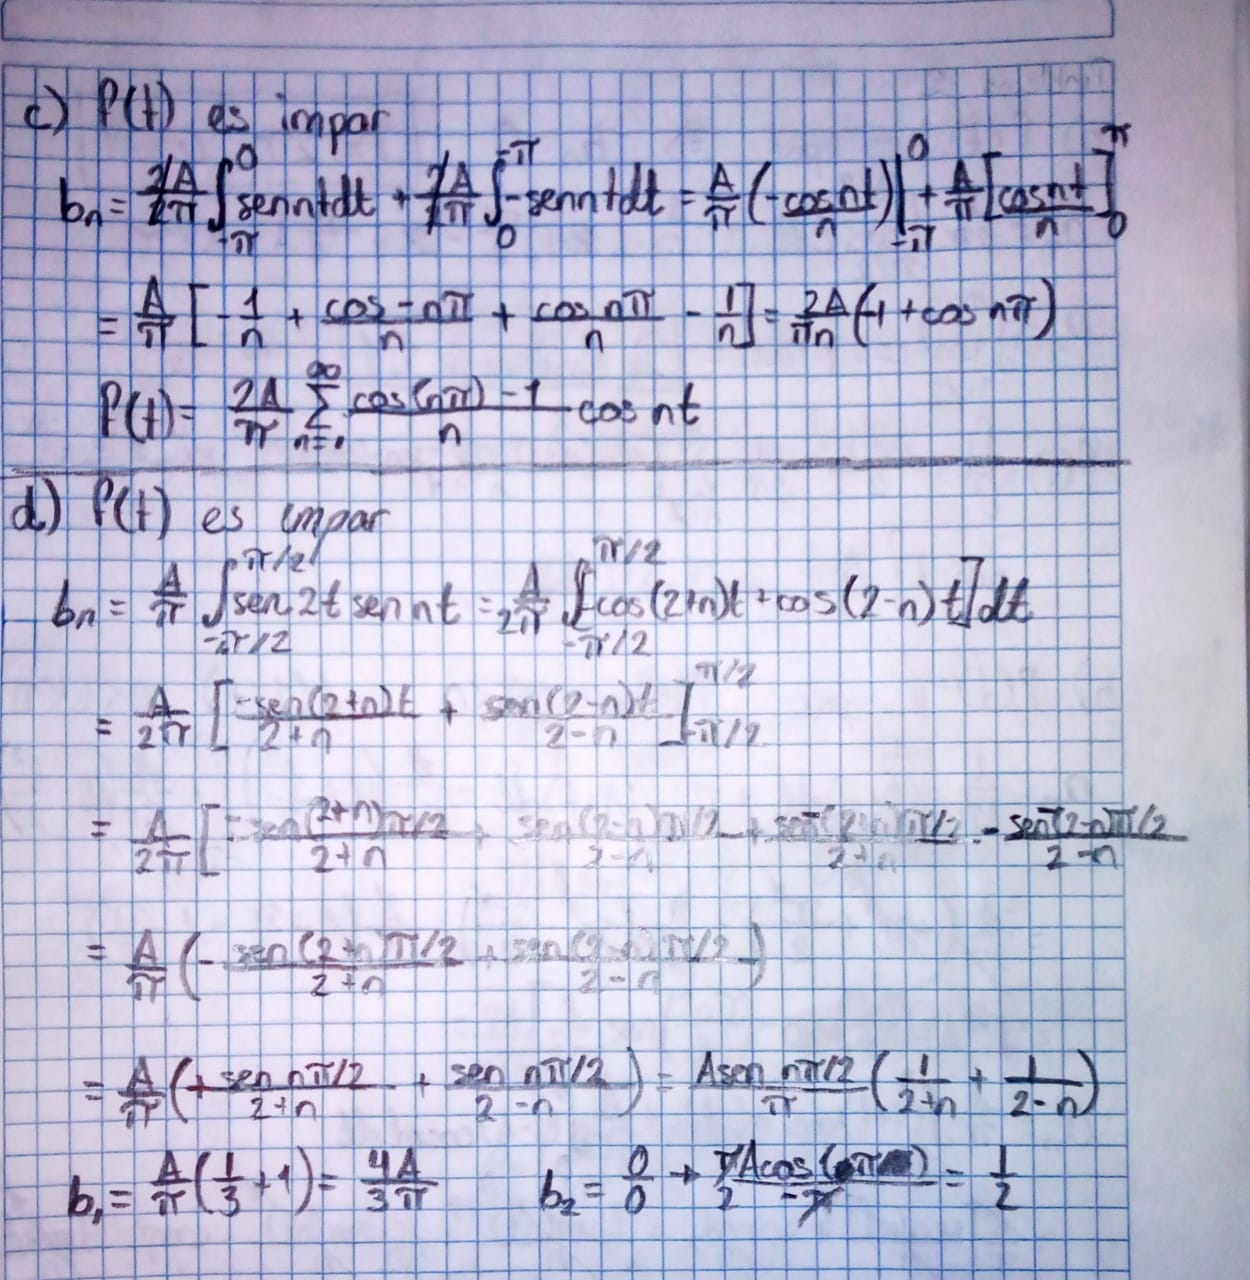 c) f(t) es impar
bn = 2A/2π ∫_{-π}^{0} sen nt dt + 2A/2π ∫_{0}^{-π} -sen nt dt = A/π (-cos nt/n)|_{-π}^{0} + A/π [cos nt/n]_{0}^{π}
= A/π [-1/n + cos -nπ/n + cos nπ/n - 1/n] = 2A/πn (-1 + cos nπ)
f(t) = 2A/π Σ_{n=1}^{∞} cos(nπ) - 1/n cos nt
d) f(t) es impar
bn = A/π ∫_{-π/2}^{π/2} sen 2t sen nt = A/2π ∫_{-π/2}^{π/2} [-cos(2+n)t + cos(2-n)t] dt
= A/2π [-sen(2+n)t/2+n + sen(2-n)t/2-n]_{-π/2}^{π/2}
= A/2π [-sen(2+n)π/2/2+n + sen(2-n)π/2/2-n + sen-(2+n)π/2/2+n - sen-(2-n)π/2/2-n
= A/π (-sen(2+n)π/2/2+n + sen(2-n)π/2/2-n)
= A/π (+sen nπ/2/2+n + sen nπ/2/2-n) = A sen nπ/2/π (1/2+n + 1/2-n)
b₁ = A/π (1/3 + 1) = 4A/3π b₂ = 0/0 → πA cos(π)/2 -π = 1/2